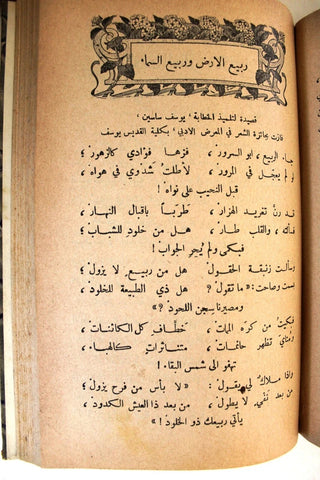 ربيع الارض وربيع السماء
قصيدة لتلميذ الخطابة ، يوسف ساسين ،
فازت بجائزة الشعر في المعرض الادبي بكلية القديس يوسف
جاء الربيع، ابو السرور، فزها فؤادي كالزهور،
لو لم يعجل في المرور، لأطلت شدوي في هواه،
قبل النحيب على نواه!
قد رنّ تغريد الهزار، طرباً باقبال النهار،
فسألته، والقلب طار، هل من خلود للشباب؟
فبكى ولم يحر الجواب!
وسألت زنبقة الحقول، هل من ربيع لا يزول؟
وصاحت: «ما تقول؟ هل ذي الطبيعة للخلود،
ومصيرنا سجن اللحود؟»
فبكيت من كره الممات، خطّاف كل الكائنات،
تظهر حائمات، متناثرات كالهباء،
تهفو الى شمس البقاء!
واذا ملاك لي يقول: «لا بأس من فرح يزول؛
من بعد لا يطول، من بعد ذا العيش الكدود،
يأتي ربيعك ذو الخلود!»